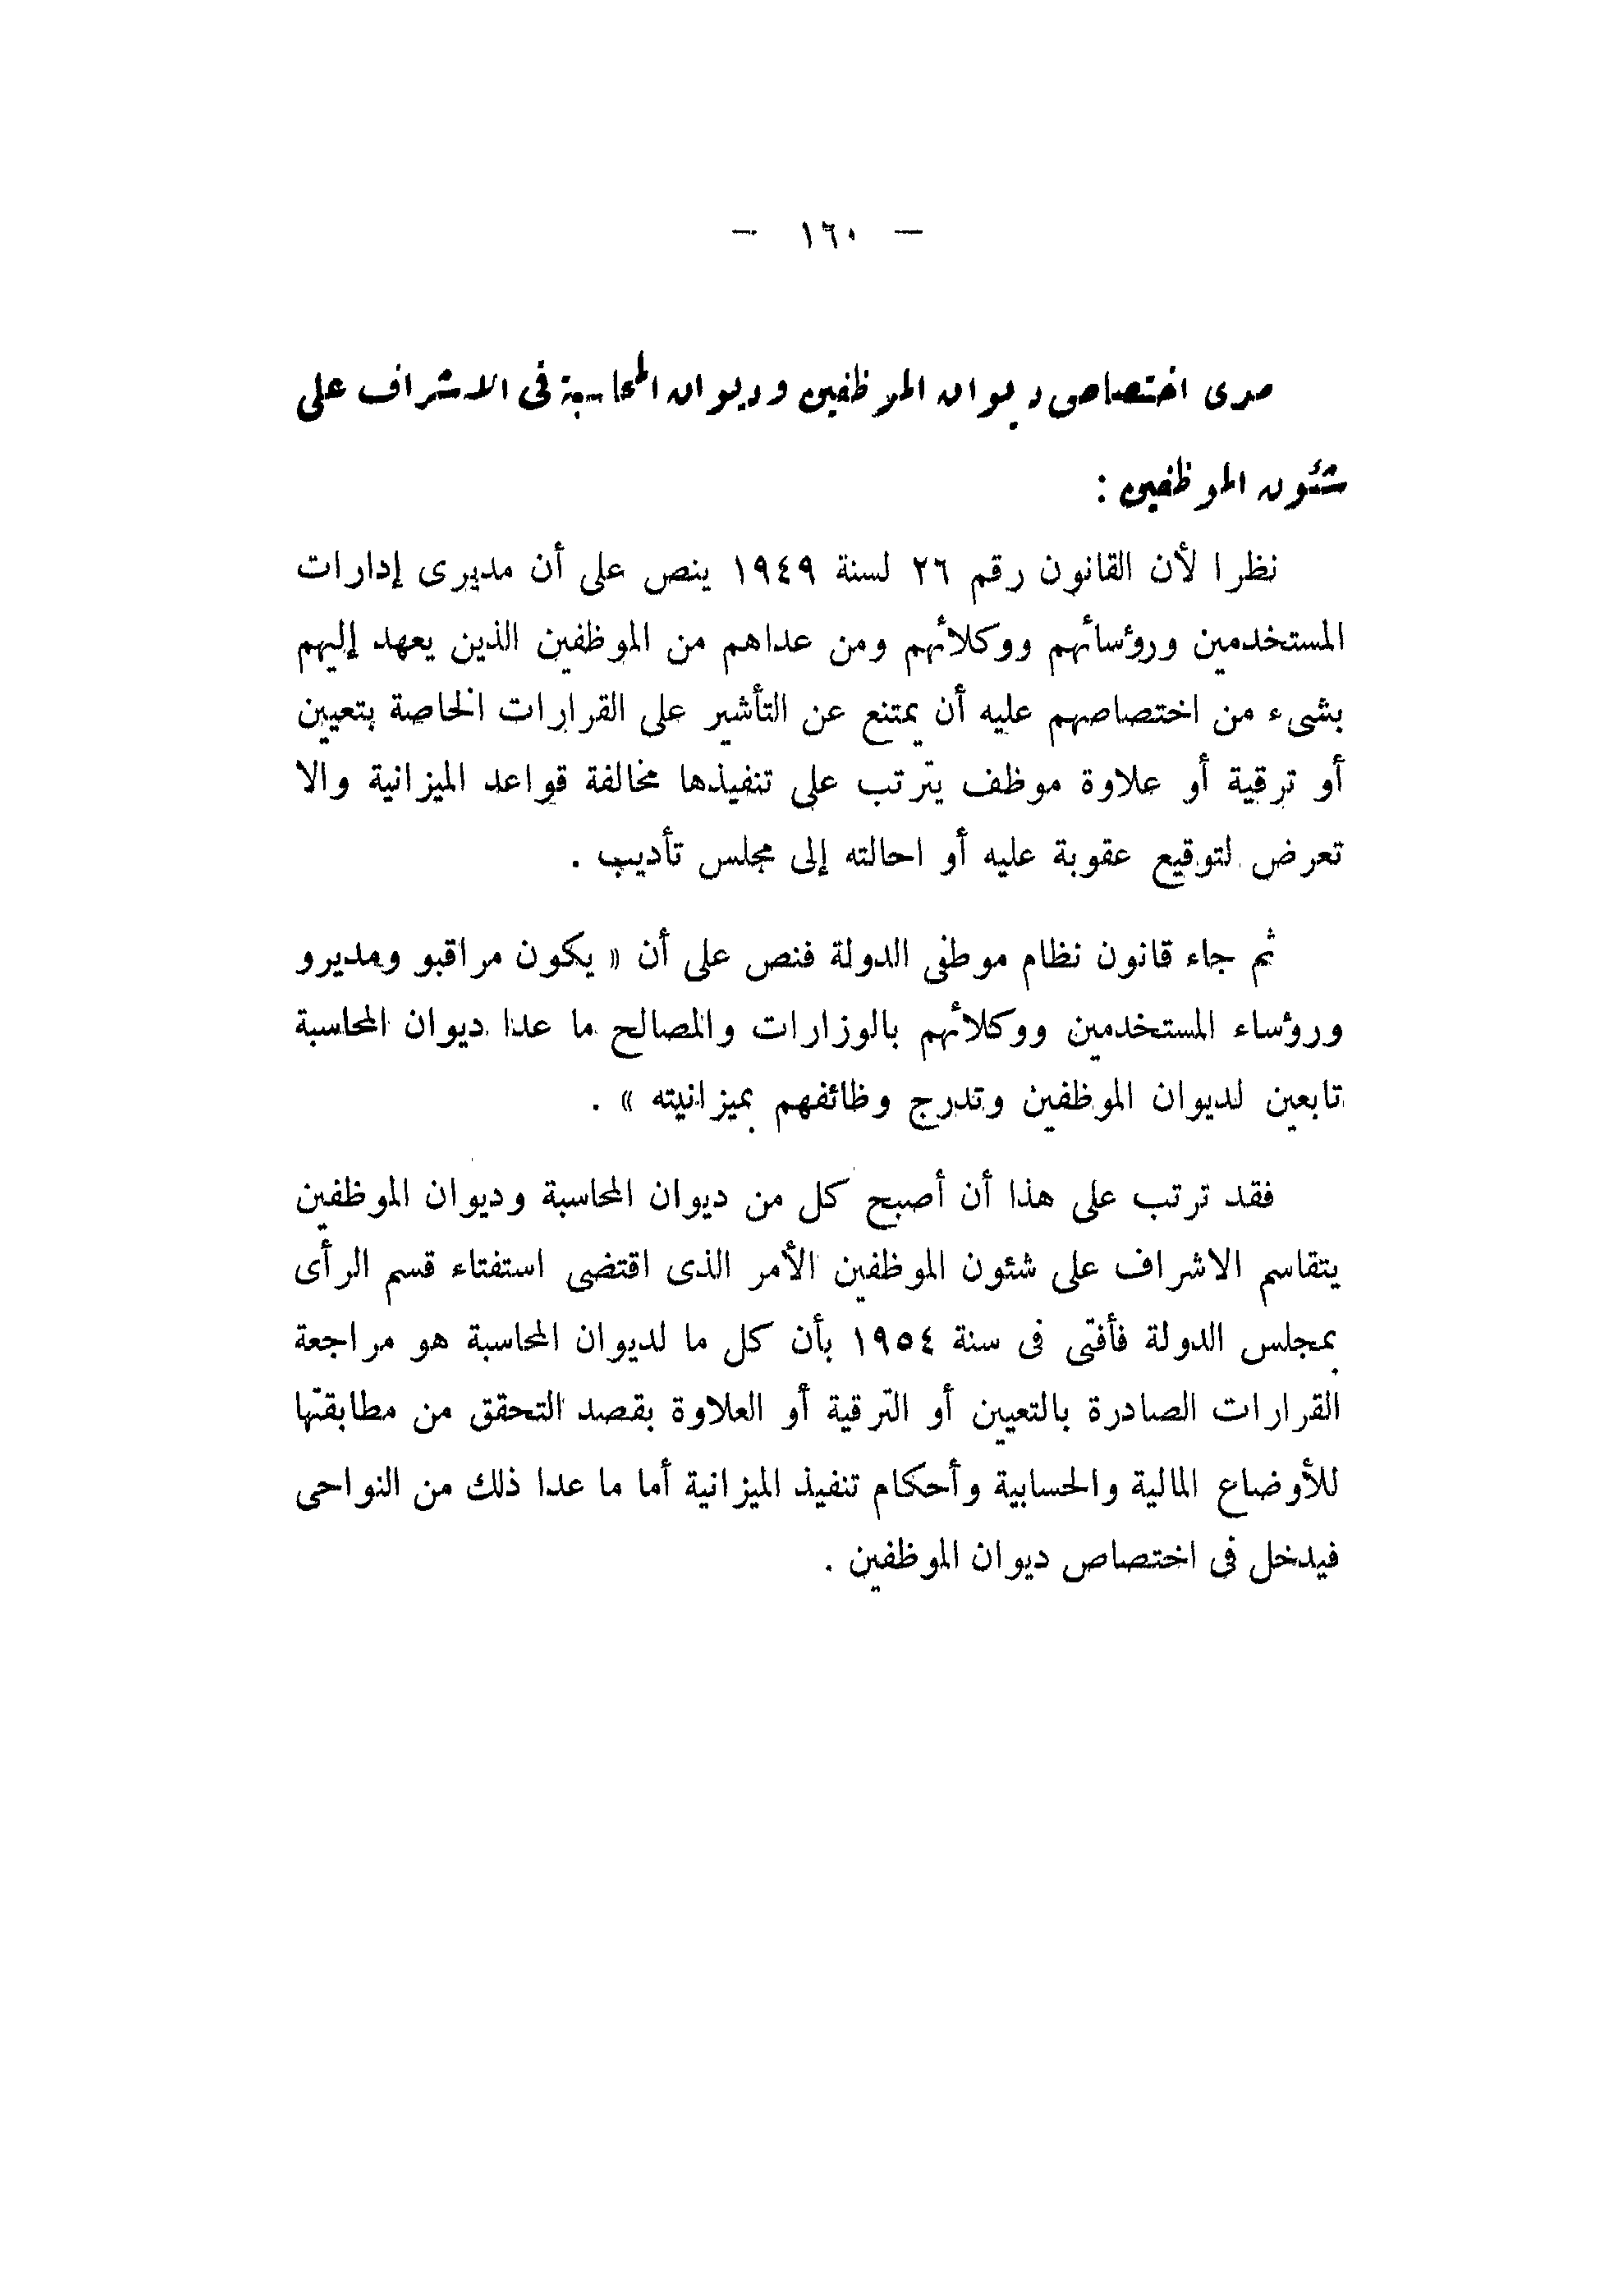 — ١٦٠ —
مدى اختصاص ديوان الموظفين وديوان المحاسبة فى الاشراف على
شئون الموظفين :
نظرا لأن القانون رقم ٢٦ لسنة ١٩٤٩ ينص على أن مديرى إدارات
المستخدمين ورؤسائهم ووكلائهم ومن عداهم من الموظفين الذين يعهد إليهم
بشىء من اختصاصهم عليه أن يمتنع عن التأشير على القرارات الخاصة بتعيين
أو ترقية أو علاوة موظف يترتب على تنفيذها مخالفة قواعد الميزانية والا
تعرض لتوقيع عقوبة عليه أو احالته إلى مجلس تأديب .
ثم جاء قانون نظام موظفى الدولة فنص على أن « يكون مراقبو ومديرو
ورؤساء المستخدمين ووكلائهم بالوزارات والمصالح ما عدا ديوان المحاسبة
تابعين لديوان الموظفين وتدرج وظائفهم بميزانيته » .
فقد ترتب على هذا أن أصبح كل من ديوان المحاسبة وديوان الموظفين
يتقاسم الاشراف على شئون الموظفين الأمر الذى اقتضى استفتاء قسم الرأى
بمجلس الدولة فأفتى فى سنة ١٩٥٤ بأن كل ما لديوان المحاسبة هو مراجعة
القرارات الصادرة بالتعيين أو الترقية أو العلاوة بقصد التحقق من مطابقتها
للأوضاع المالية والحسابية وأحكام تنفيذ الميزانية أما ما عدا ذلك من النواحى
فيدخل فى اختصاص ديوان الموظفين .